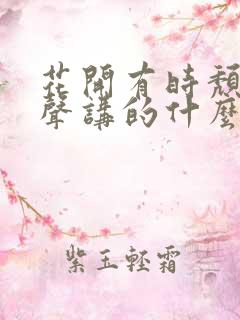 花開有時頹
聲講的什麼
紫玉輕霜